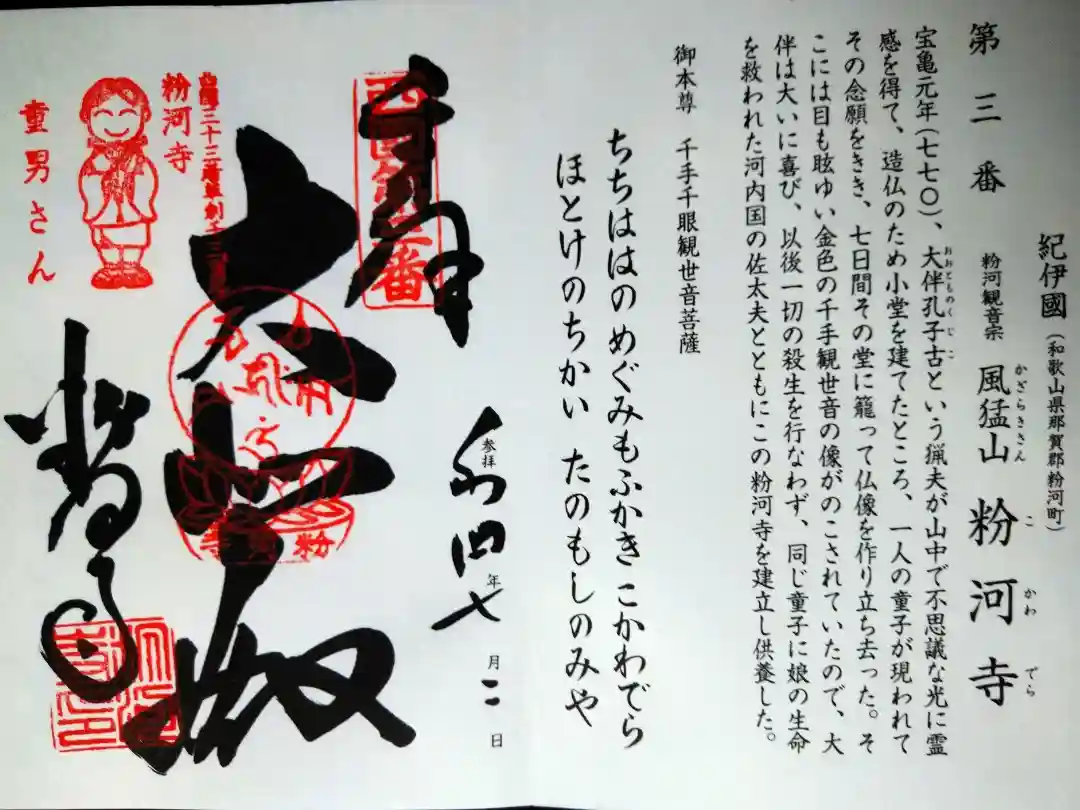 紀伊國(和歌山県那賀郡粉河町)
第三番 粉河観音宗 風猛山 粉河寺
かざらきさん こかわでら
宝亀元年(七七〇)、大伴孔子古という猟夫が山中で不思議な光に霊
おおとものくじこ
感を得て、造仏のため小堂を建てたところ、一人の童子が現われて
その念願をきき、七日間その堂に籠って仏像を作り立ち去った。そ
こには目も眩ゆい金色の千手観世音の像がのこされていたので、大
伴は大いに喜び、以後一切の殺生を行なわず、同じ童子に娘の生命
を救われた河内国の佐太夫とともにこの粉河寺を建立し供養した。
御本尊 千手千眼観世音菩薩
ちちははのめぐみもふかきこかわでら
ほとけのちかい たのもしのみや
参拝 年七月二日
西国第三番
大悲殿
粉河寺
粉河寺
童男さん